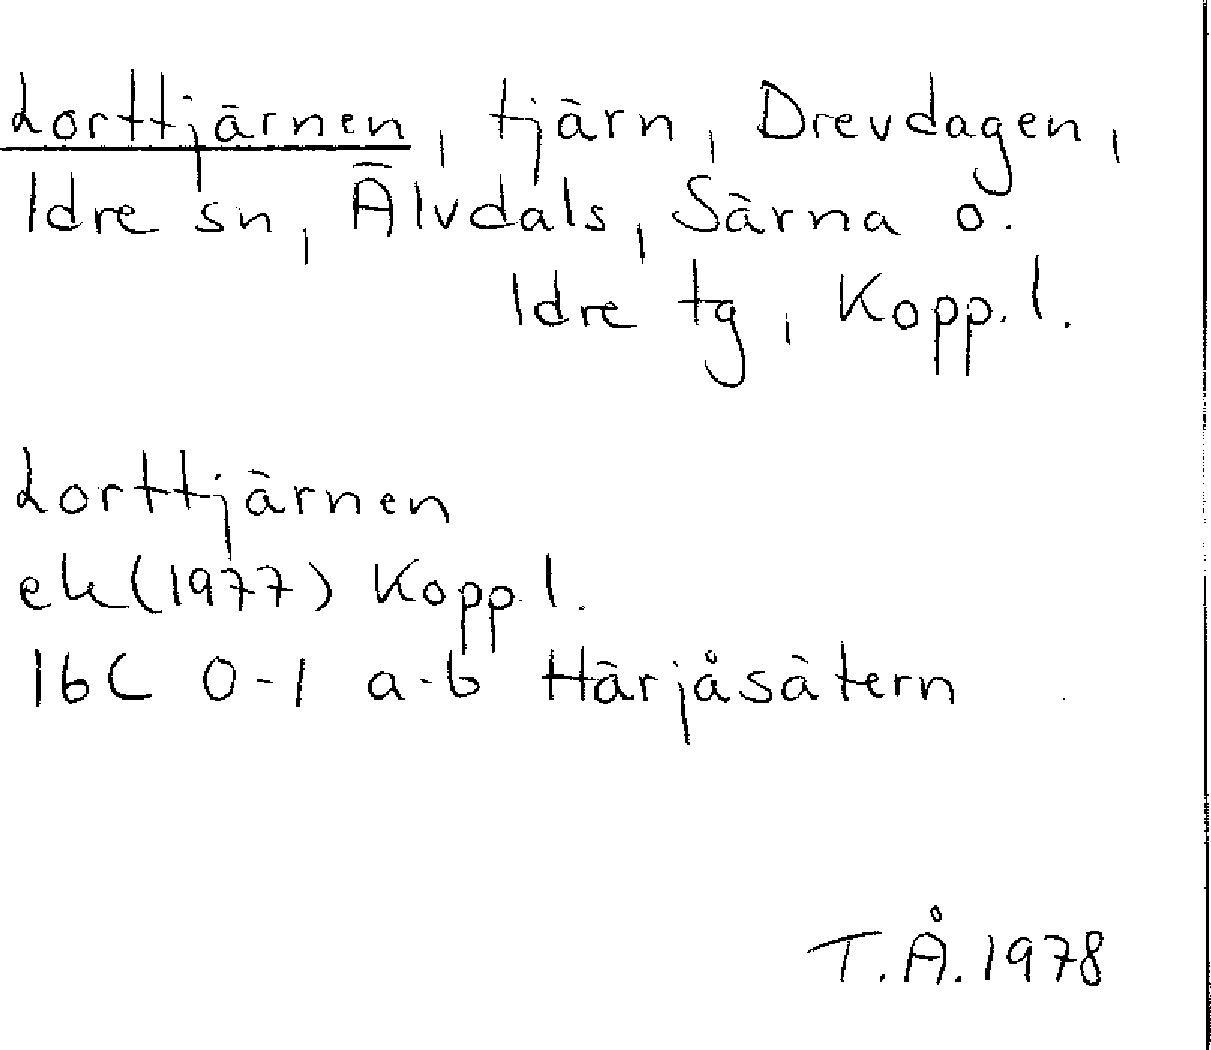 Lorttjärnen, tjärn, Drevdagen,
Idre sn, Älvdals, Särna o.
Idre tg, Kopp. l.
Lorttjärnen
ek (1977) Kopp l.
16C 0-1 a-b Härjåsätern
T.Å. 1978